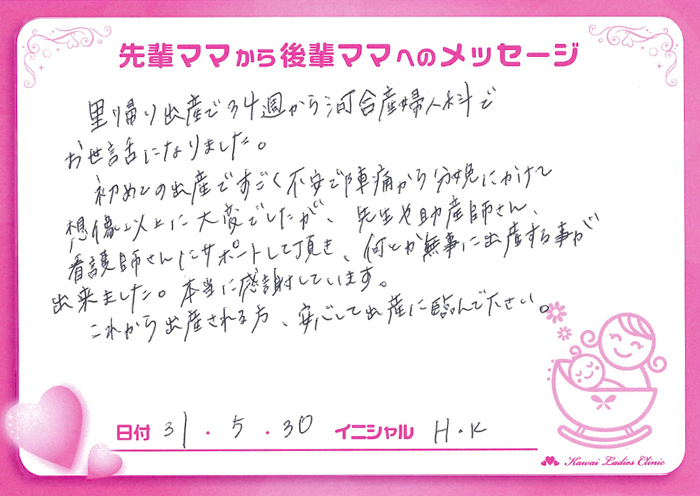 先輩ママから後輩ママへのメッセージ
里帰り出産で34週から河合産婦人科で
お世話になりました。
初めての出産ですごく不安で陣痛から分娩にかけて
想像以上に大変でしたが、先生や助産師さん、
看護師さんにサポートして頂き、何とか無事に出産する事が
出来ました。本当に感謝しています。
これから出産される方、安心して出産に臨んで下さい。
日付 31 . 5 . 30 イニシャル H.K
Kawai Ladies Clinic